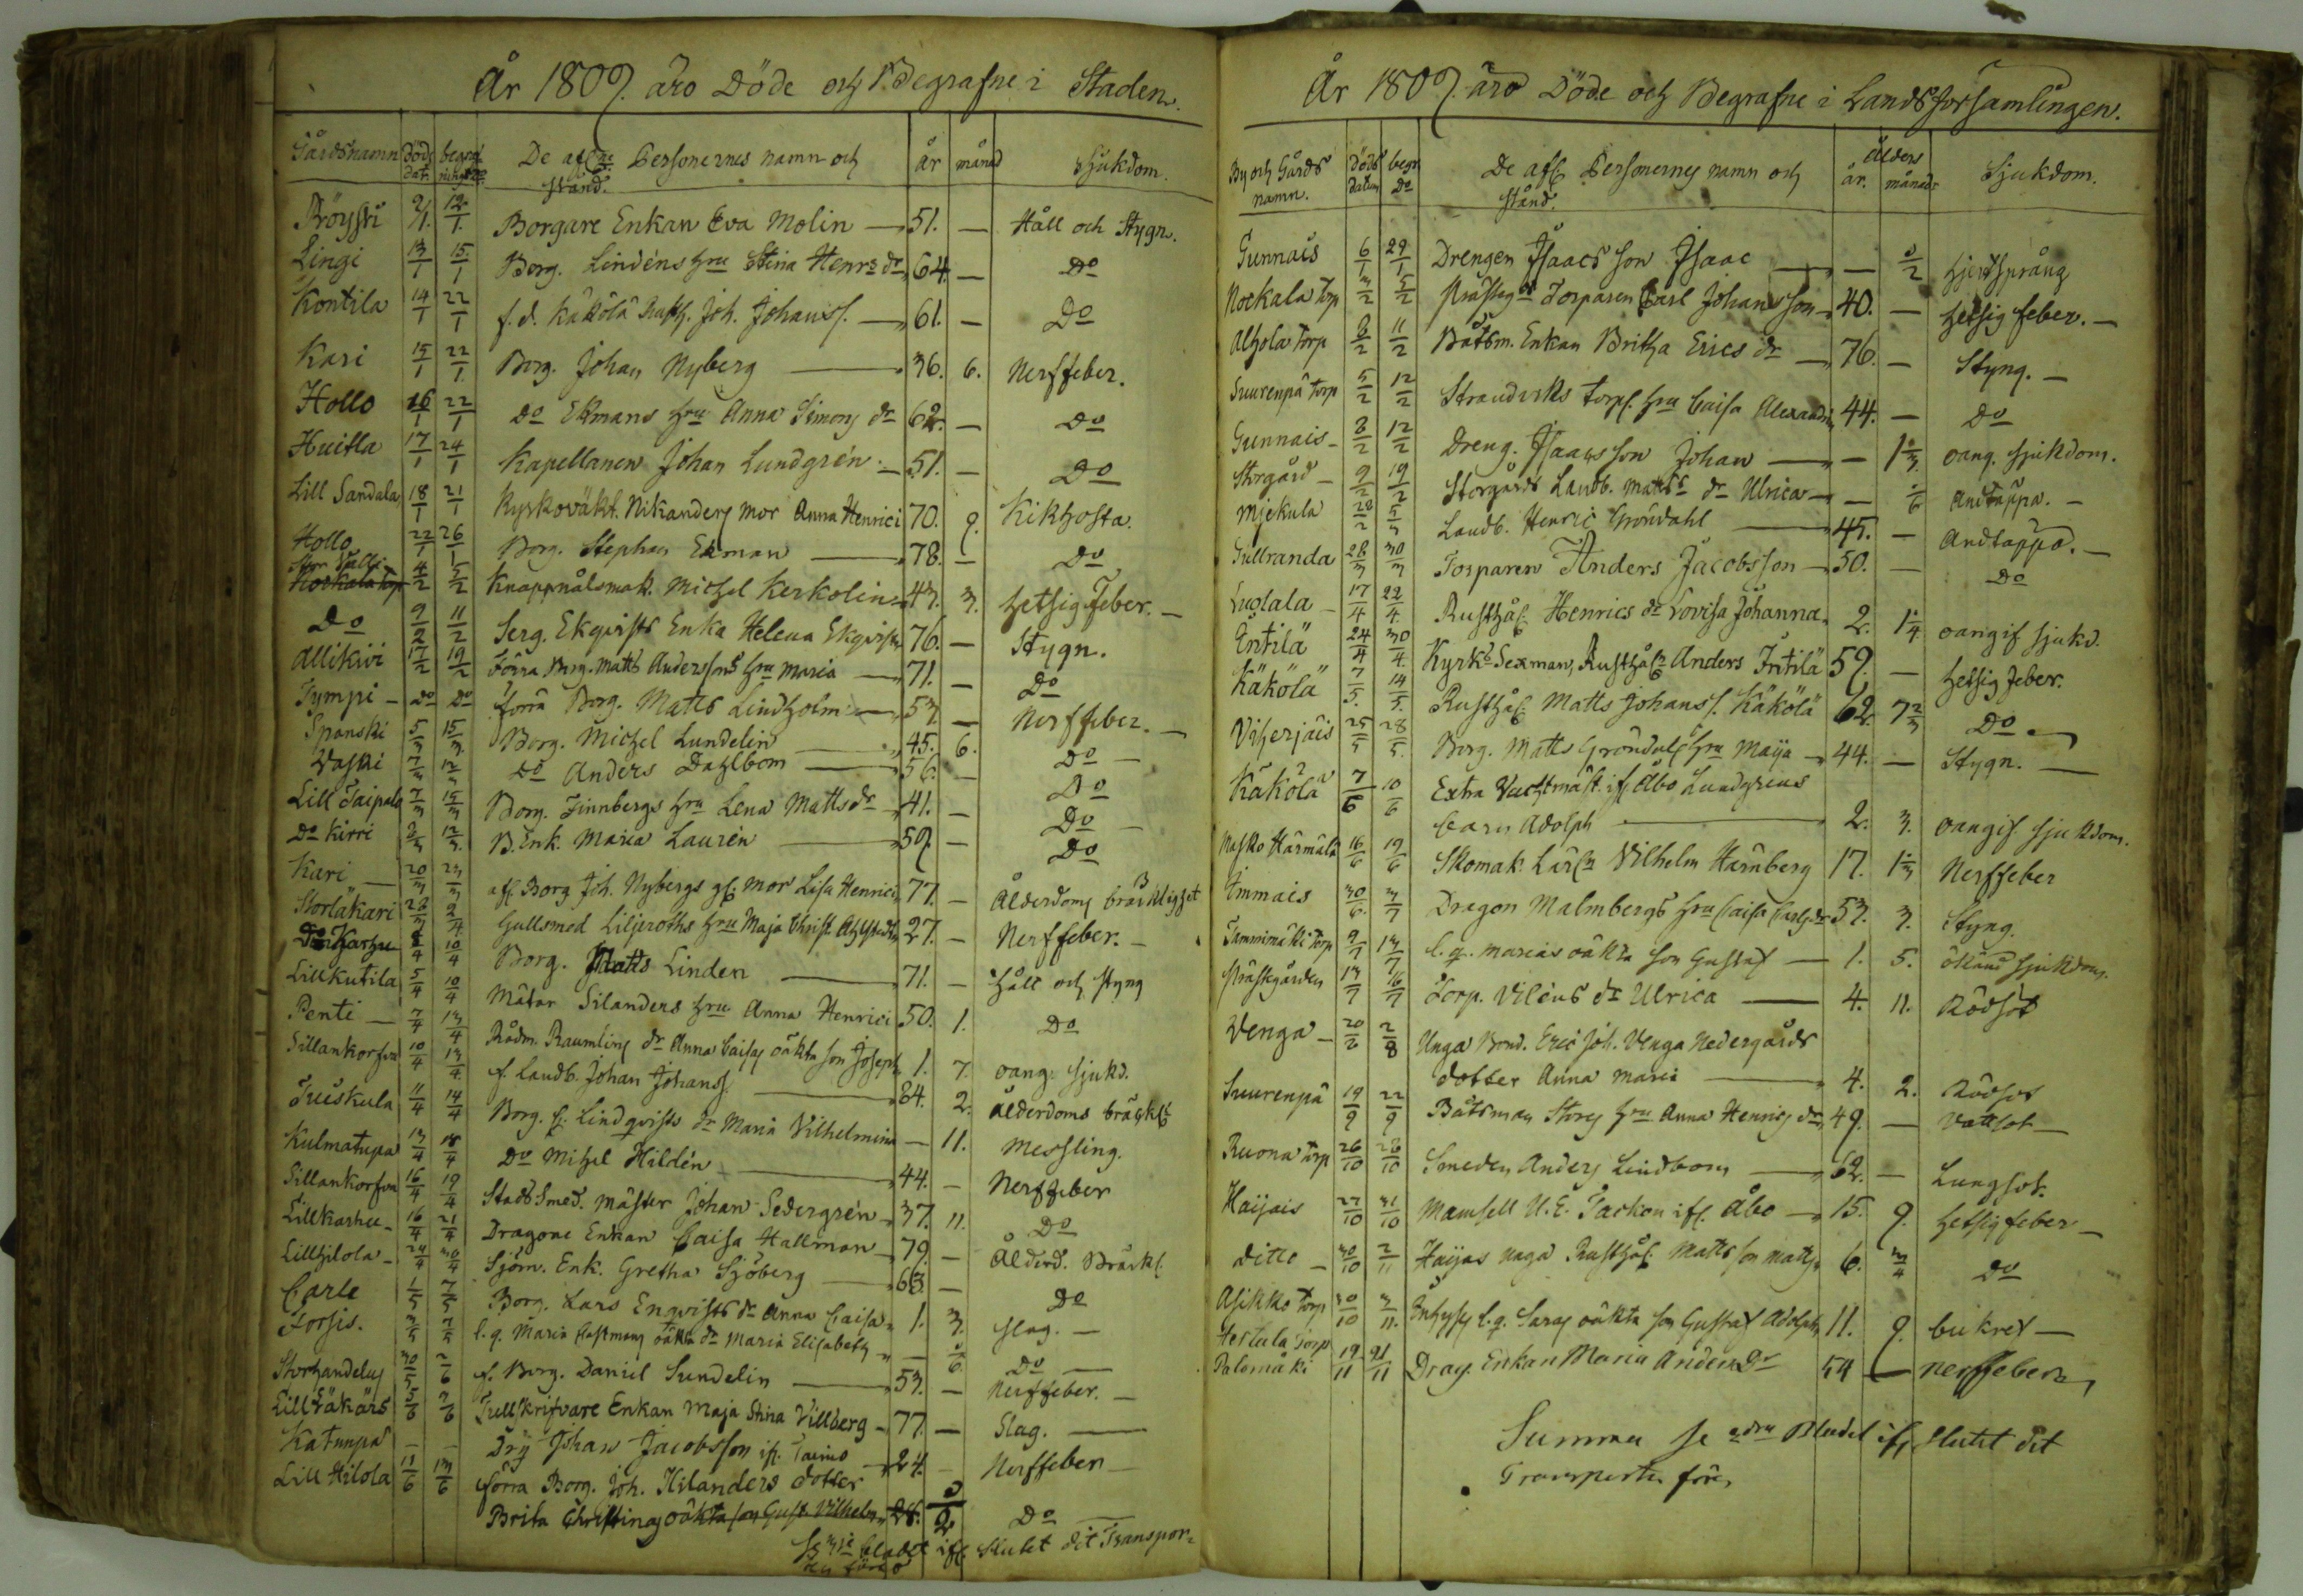 År 1809. äro Döde och Begrafne i Staden.
Gårdsnamn Döds dat. begrafnings De afl. Personernes namn och stånd. år månad Sjukdom.
Pröysti 2/1. 12/1. Borgare Enkan Eva Molin — 51. — Håll och Stygn.
Lingi 13/1 15/1 Borg. Lindéns hru Stina Henrs dr 64. — Do
Kontila 14/1 22/1 f.d. Käkölä Rusth. Joh. Johanss. — 61. — Do
Kari 15/1 22/1. Borg. Johan Nyberg — 36. 6. Nerffeber.
Hollo 16/1 22/1 Do Ekmans hru Anna Simons dr 62. — Do
Huitla 17/1 24/1 Kapellanen Johan Lundgrén — 51. — Do
Lill Sandala 18/1 21/1 Kyrkoväkt. Nikanders mor Anna Henrici 70. 9. Kikhosta.
Hollo 22/1 26/1 Borg. Stephan Ekman — 78. — Do
Stor Välli 4/2 5/2 Knappnålsmak. Michel Kerkolin 43. 3. hetsig Feber. —
Do 9/2 11/2 Serg. Ekqvists Enka Helena Ekqvist 76. — Stygn.
Allikivi 17/2 19/2 Förra Borg. Matts Anderssons hru Maria — 71. — Do
Tympi — Do Do förra Borg. Matts Lindholm — 53. — Nerffeber. —
Spanski 5/3 15/3. Borg. Michel Lundelin — 45. 6. Do —
Vaski 7/3 12/3 Do Anders Dahlbom — 56. — Do
Lill Taipale 7/3 15/3 Borg. Finnbergs hru Lena Matts dr 41. — Do —
Do Kirri 8/3 12/3. B. Enk. Maria Laurén — 59. — Do
Kari — 20/3 23/3 afl. Borg. Joh. Nybergs gl. mor Lisa Henrici 77. — Ålderdoms bräcklighet
Storläkari 28/3 2/4 Gullsmed Liljeroths hru Maja Christ. 27. — Nerffeber. —
Karhu 4/4 10/4 Borg. Matts Linden — 71. — håll och styng
Lillkutila 5/4 10/4 Mätar Silanders hru Anna Henrici 50. 1. Do
Penti — 7/4 13/4 Rådm. Raumlins dr Anna Caisas oäkta son Joseph 1. 7. oang. sjukd.
Sillankorfva 10/4 13/4. f. Landb. Johan Johanss. — 84. 2. ålderdoms bräckl.
Tuiskula 11/4 14/4 Borg. Lindqvists dr Maria Vilhelmina — 11. Messling.
Kulmatupa 13/4 18/4 Do Mihel Hildén — 44. — Nerffeber
Sillankorfva 16/4 19/4 Stads Smed. mäster Johan Sedergrén 37. 11. Do
Lillkarhu — 16/4 21/4 Dragone Enkan Caisa Hallman 79. — Ålderd. Bräckl.
Lillhilola — 24/4 30/4 Sjöm. Enk. Gretha Sjöberg — 63. — Do
Carle 1/5 7/5 Borg. Lars Enqvists dr Anna Caisa 1. 3. slag. —
Forsis. 3/5 7/5 l. q. Maria oäkta dr Maria Elisabeth — 6. Do —
30/5 2/6 f. Borg. Daniel Sundelin — 53. — Nerffeber. —
5/6 7/6 Tullskrifvare Enkan Maja Stina Villberg 77. — Slag. —
Katunpä — — Drg Johan Jacobsson 24. — Nerffeber —
Lill Hilola 11/6 13/6 förra Borg. Joh. Kilanders dotter
Brita Christinas oäkta son Gust. Vilhelm 28. 0/2 Do —
bladet ifr. slutet dit Transpor-
År 1809. äro Döde och Begrafne i Landsforsamlingen.
By och Gårds namn. Döds Datum begr. Do De afl. Personernes namn och stånd. Ålders år. månad Sjukdom.
Gunnais 6/1 29/1 Drengen Isaacs son Isaac — — 0/2 hjertsprång
Nockala Torp 3/2 5/2 Torparen Carl Johansson 40. — hetsig feber. —
Alhola Torp 8/2 11/2 Båtsm. Enkan Britha Erics dr 76. — Styng. —
Suurenpä Torp 5/2 12/2 Strandviks torp. hru Caisa 44. — Do
Gunnais — 8/2 12/2 Dreng. Isaacs son Johan — — 1/3. oang. sjukdom.
Storgård — 9/2 19/2 Storgårds Landb. Matts dr Ulrica — — 0/6 andtäppa. —
Mjekula 28/2 5/3 Landb. Henric Gröndahl — 45. — Andtäppa. —
Gullranda 28/3 30/3 Torparen Anders Jacobsson 50. — Do
Luolala — 17/4 22/4. Rusthål. Henrics dr Lovisa Johanna 2. 1/4 oangif. sjukd.
Entilä 24/4 30/4. Kyrks Sexman, Rusthåln Anders Fritilä 59. — hetsig feber.
Käkölä 7/5. 14/5. Rusthål. Matts Johanss. Käkölä 62. 7 2/3 Do —
Viherjäis 25/5 28/5. Borg. Matts Gröndals hru Maija 44. — Stygn. —
Käkölä 7/6 10/6 Extra Vachtmäst. ifr. Åbo Lundgrens
barn Adolph — 2. 3. oangif. sjukdom.
Nasko Härmälä 16/6 19/6 Skomak. Lärln Vilhelm Härnberg 17. 1/3 Nerffeber
Immais 30/6. 3/7 Dragon Malmbergs hru Caisa Carls dr 53. 3. Styng.
Tammimäki Torp 9/7 13/7 l. q. Marias oäkta son Gustaf — 1. 5. okänd sjukdom.
Prästgården 13/7 16/7 Torp. Viléns dr Ulrica — 4. 11. Rödsot
Venga — 20/6 2/8 Unga Bond. Eric Joh. Venga Nedergårds
dotter Anna Maria — 4. 2. Rödsot
Suurenpä 19/9 22/9 Båtsman Stors hru Anna Henrics dr 49. — Vattsot —
Ruona Torp 26/10 28/10 Smeden Anders Lindbom — 62. — Lungsot.
Haijais 27/10 31/10 Mamsell U. E. Tackon ifr. Åbo — 15. 9. hetsig feber —
ditto — 30/10 2/11 Haijas unga Rusthål. Matts son Matts 6. 3/4 Do
Asikko Torp 30/10 3/11. l. q. Saras oäkta son Gustaf Adolph 11. 9. bukref —
Hertula Torp
Palomäki 19/11 21/11 Drag. Enkan Maria Anders Dr 54 — nerffeber
Summa se bladet ifr. slutet dit
Transporten förer